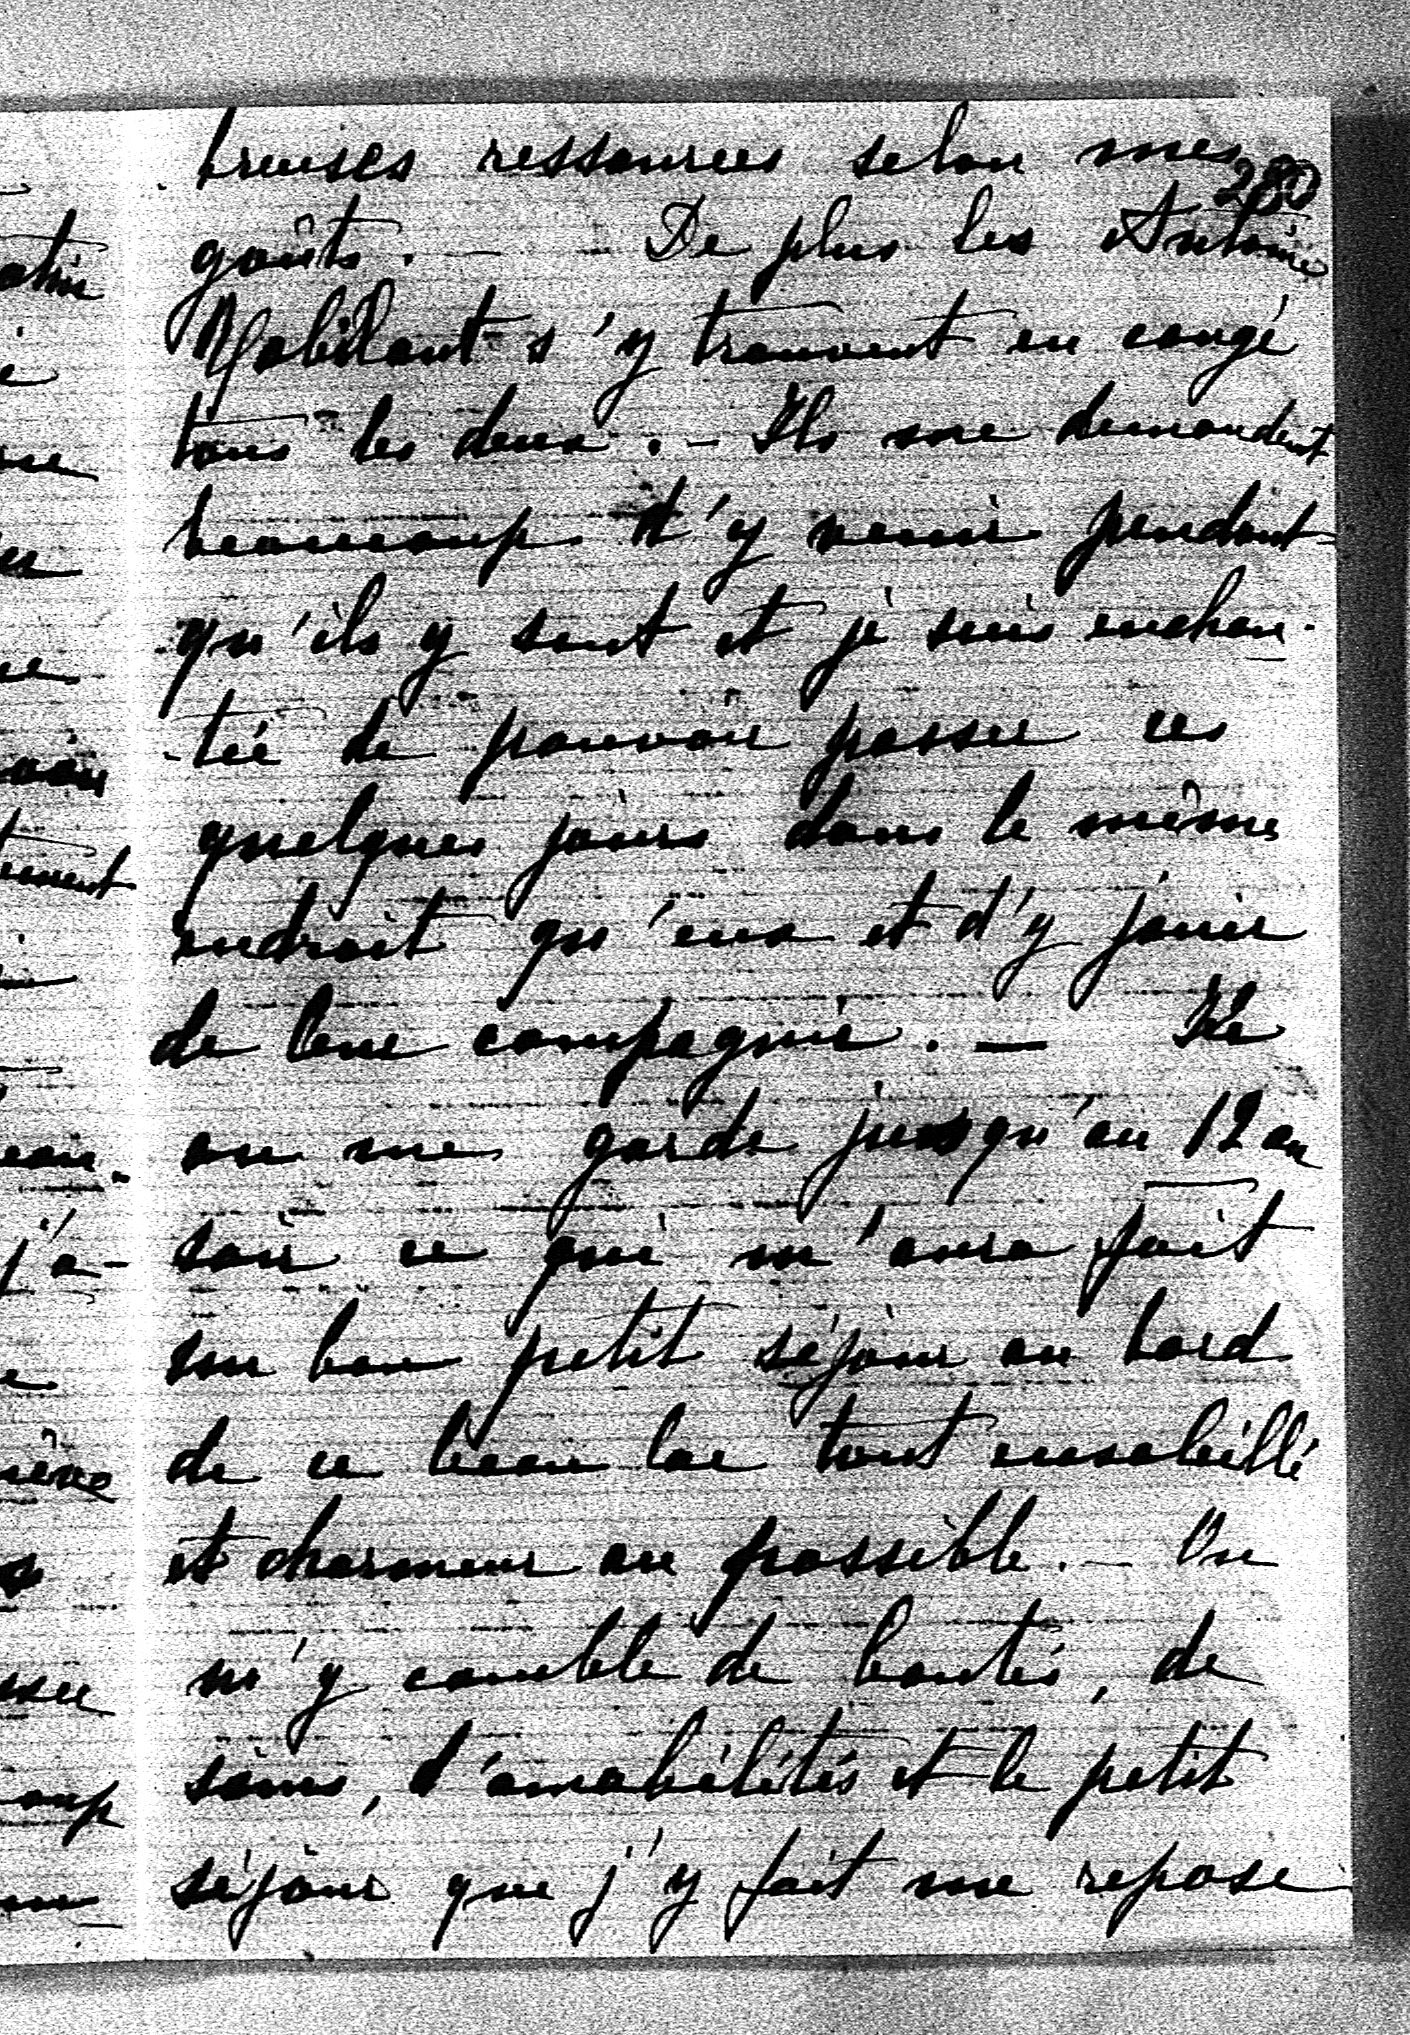 breuses ressources selon mes
280
goûts. — De plus les Antoine
s'y trouvent en congé
tous les deux. — Ils me demandent
beaucoup d'y venir pendant
qu'ils y sont et je suis enchan-
-tée de pouvoir passer ces
quelques jours dans le même
endroit qu'eux et d'y jouir
de leur compagnie. —
on me garde jusqu'au 12 au
soir ce qui m'aura fait
un bon petit séjour au bord
de ce beau lac tout ensoleillé
et charmeur au possible. — On
m'y comble de bontés, de
soins, d'amabilités et le petit
séjour que j'y fait me repose